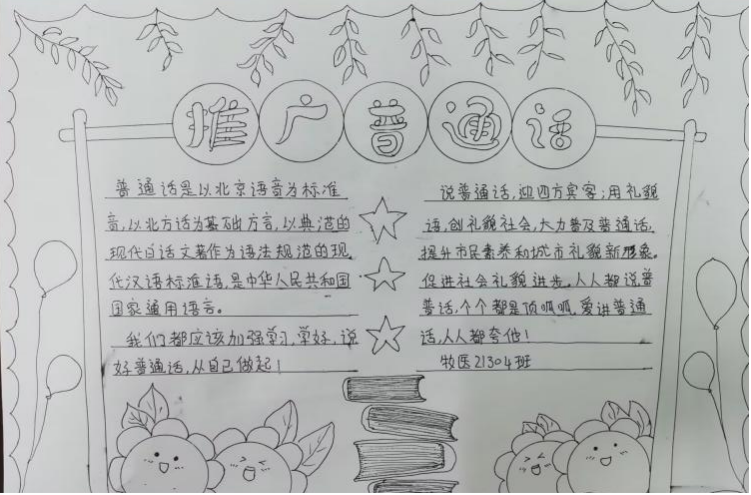 推广普通话
普通话是以北京语音为标准
音，以北方话为基础方言，以典范的
现代白话文著作为语法规范的现
代汉语标准语，是中华人民共和国
国家通用语言。
我们都应该加强学习，学好，说
好普通话，从自己做起！
说普通话，迎四方宾客；用礼貌
语，创礼貌社会，大力普及普通话，
提升市民素养和城市礼貌新形象。
促进社会礼貌进步。人人都说普
普话，个个都是顶呱呱，爱讲普通
话，人人都夸他！
牧医21304班